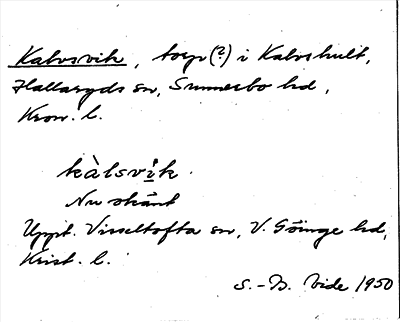 Kalvsvik, torp(?) i Kalvshult,
Hallaryds sn, Sunnerbo hd,
Kron. l.
kàlsvik
Nu okänt
Uppt. Visseltofta sn, V. Göinge hd,
Krist. l.
S.-B. Vide 1950